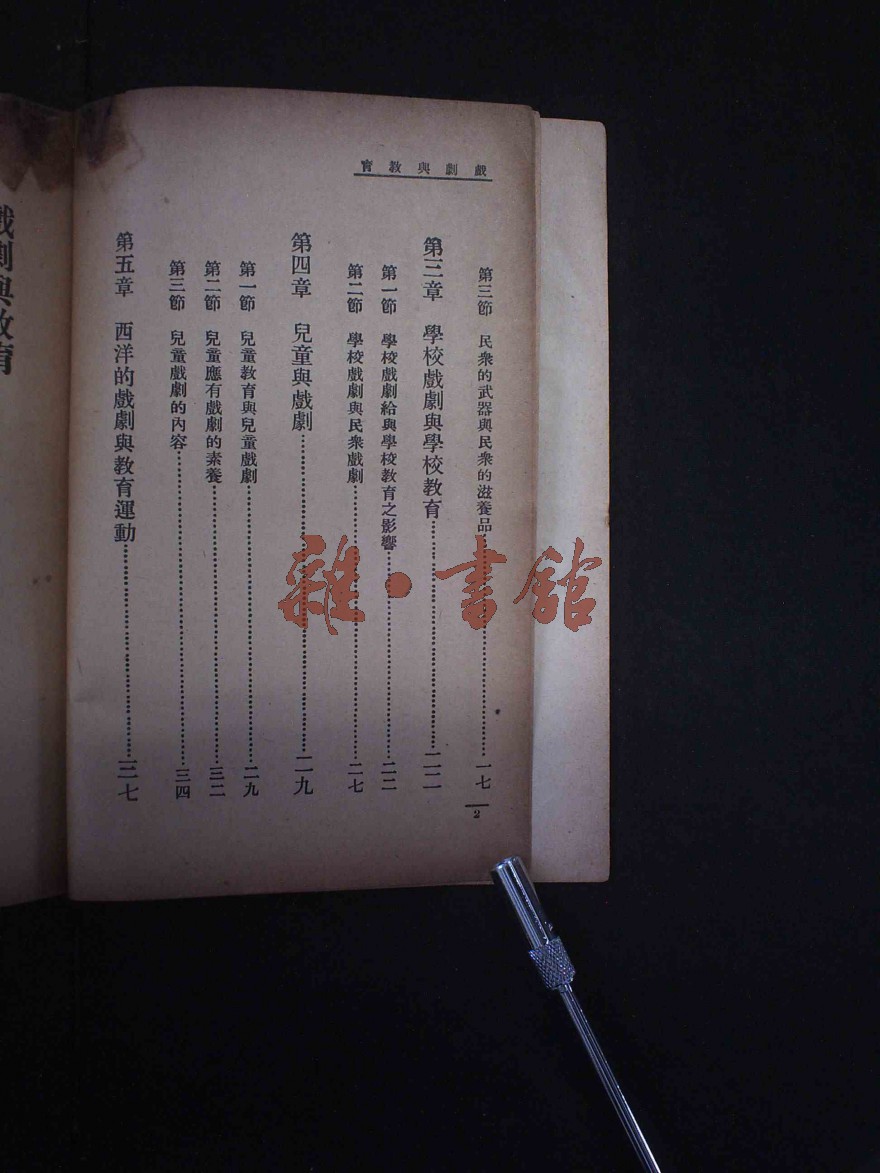 戲劇與教育
第三節　民衆的武器與民衆的滋養品…………一七
第三章　學校戲劇與學校教育…………二二
第一節　學校戲劇給與學校教育之影響…………二二
第二節　學校戲劇與民衆戲劇…………二七
第四章　兒童與戲劇…………二九
第一節　兒童教育與兒童戲劇…………二九
第二節　兒童應有戲劇的素養…………三二
第三節　兒童戲劇的內容…………三四
第五章　西洋的戲劇與教育運動…………三七
2
戲劇與教育
雜·書館